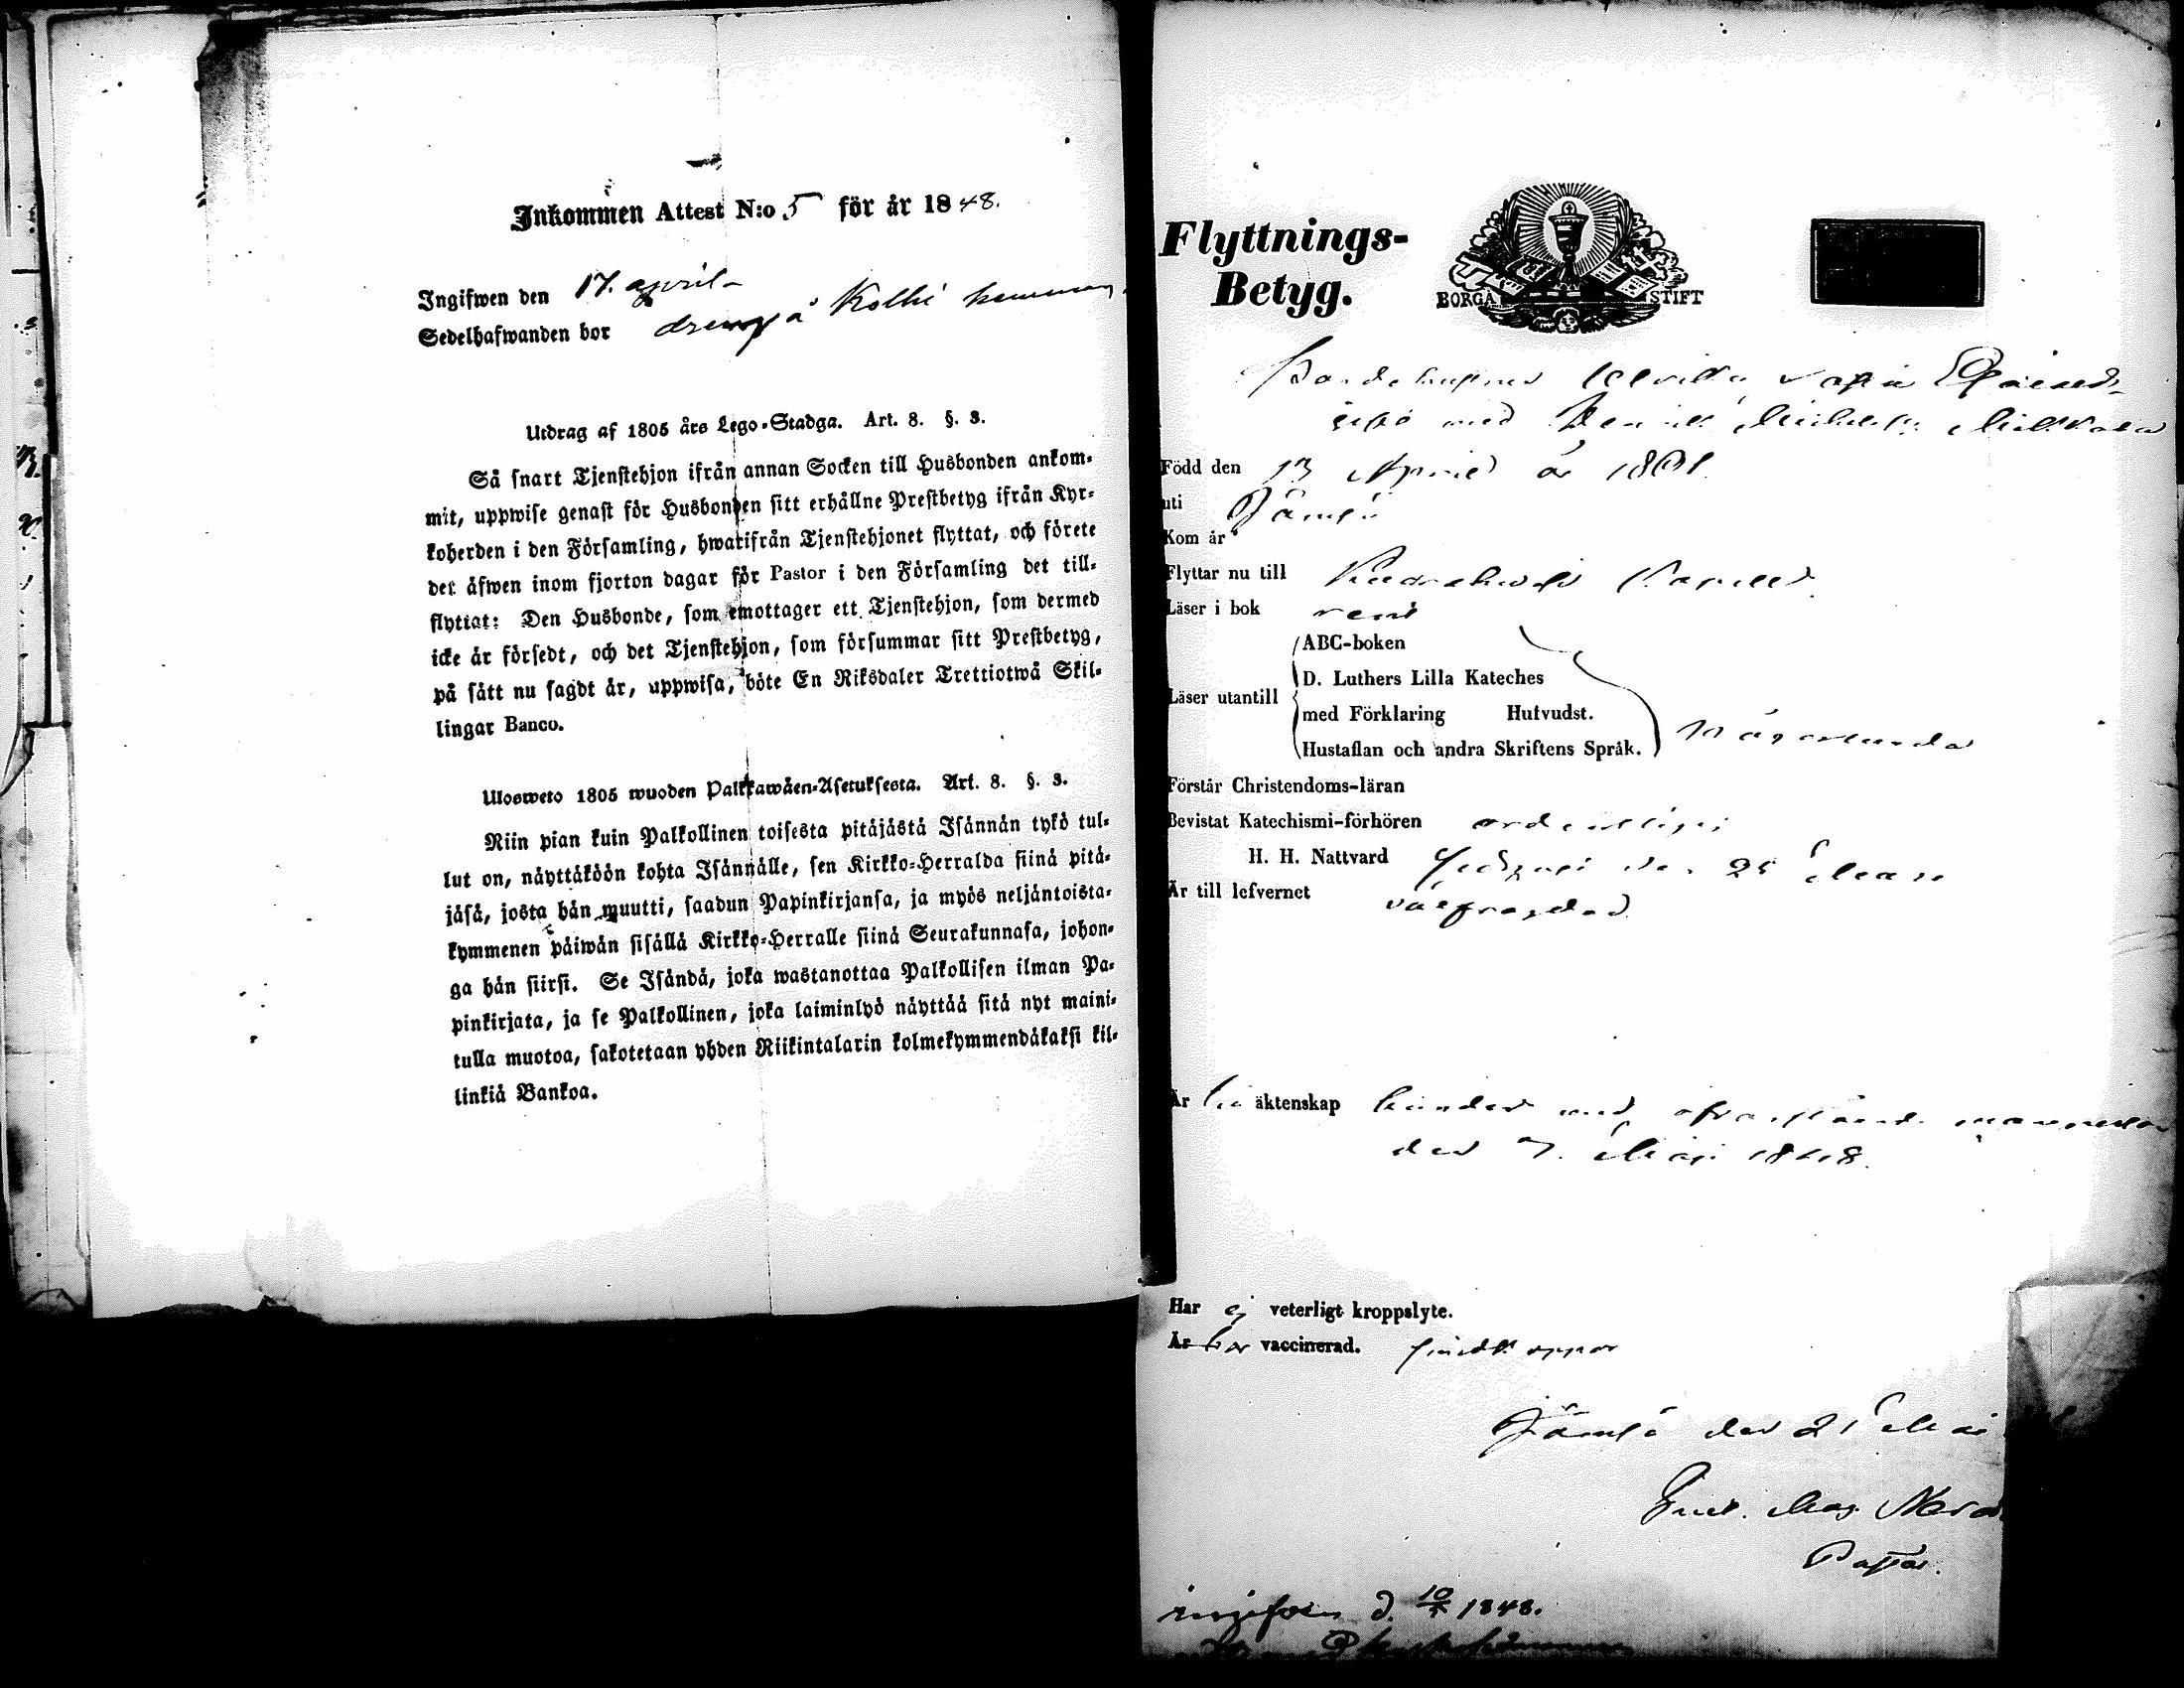 Inkommen Attest N:o 5 för år 1848.
Ingifwen den 17. april
Sedelhafwanden bor dreng på Kolhi hemman
Utdrag af 1805 års Lego-Stadga. Art. 8. §. 3.
Så snart Tjenstehjon ifrån annan Socken till Husbonden ankom-
mit, uppwise genast för Husbonden sitt erhållne Prestbetyg ifrån Kyr-
koherden i den Församling, hwarifrån Tjenstehjonet flyttat, och förete
det äfwen inom fjorton dagar för Pastor i den Församling det till-
flyttat: Den Husbonde, som emottager ett Tjenstehjon, som dermed
icke är försedt, och det Tjenstehjon, som försummar sitt Prestbetyg,
på sätt nu sagdt är, uppwisa, böte En Riksdaler Trettiotwå Skil-
lingar Banco.
Ulosweto 1805 wuoden Palkkawäen-Asetuksesta. Art. 8. §. 3.
Niin pian kuin Palkollinen toisesta pitäjästä Isännän tykö tul-
lut on, näyttäköön kohta Isännälle, sen Kirkko-Herralda siinä pitä-
jäsä, josta hän muutti, saadun Papinkirjansa, ja myös neljäntoista-
kymmenen päiwän sisällä Kirkko-Herralle siinä Seurakunnasa, johon-
ga hän siirsi. Se Isändä, joka wastanottaa Palkollisen ilman Pa-
pinkirjata, ja se Palkollinen, joka laiminlyö näyttää sitä nyt maini-
tulla muotoa, sakotetaan yhden Riikintalarin kolmekymmendäkaksi kil-
linkiä Bankoa.
Flyttnings-
Betyg.
BORGÅ STIFT
med
Född den 13 April år 1801
uti Jämsä
Kom år
Flyttar nu till Capell
Läser i bok rent
ABC-boken
D. Luthers Lilla Kateches
Läser utantill
med Förklaring Hufvudst.
Hustaflan och andra Skriftens Språk.
någorlunda
Förstår Christendoms-läran
Bevistat Katechismi-förhören ordentligen
H. H. Nattvard den 25 Mars
Är till lefvernet välfrejdad
Är äktenskap med
den 7. Maji 1848.
Har ej veterligt kroppslyte.
Är har vaccinerad. koppor
Jämsä den 21 Maj
Pastor.
ingifven d. 10/ 1848.